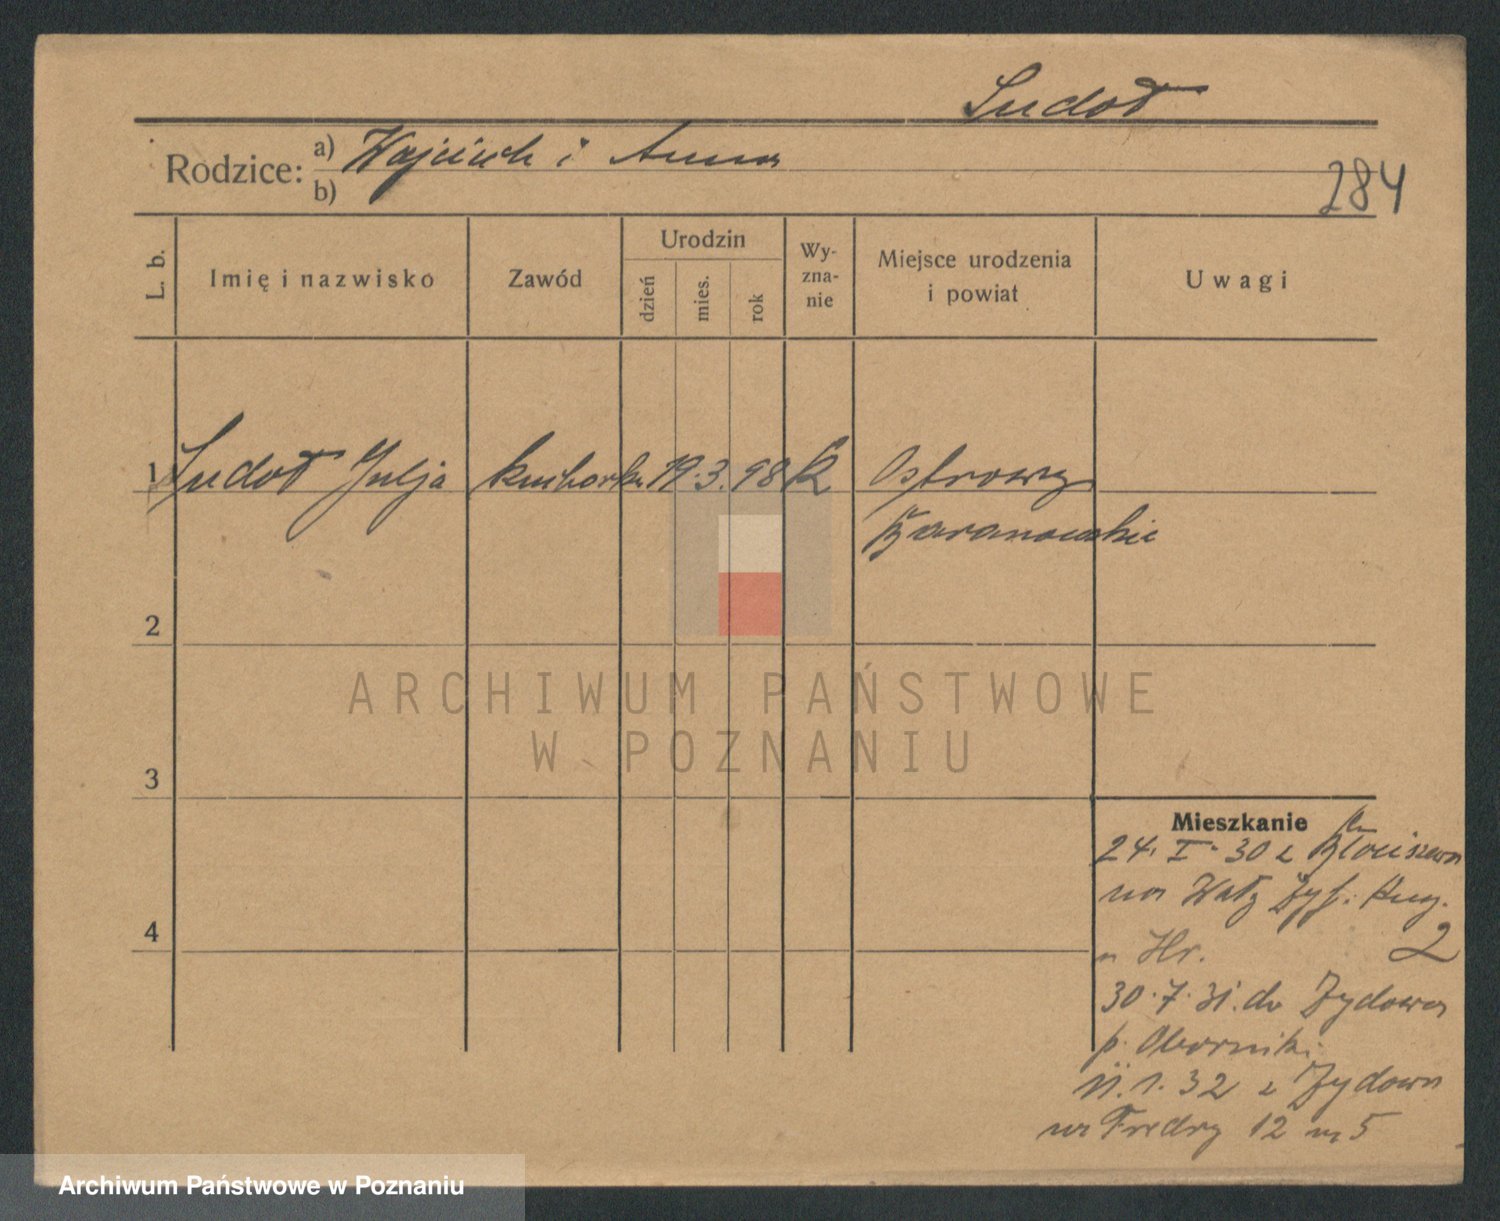 Sudoł
Rodzice: a) Wojciech i Anna
b)
284
L. b.
Imię i nazwisko
Zawód
Urodzin
dzień
mies.
rok
Wy-
zna-
nie
Miejsce urodzenia
i powiat
Uwagi
1 Sudoł Julja kucharka 19. 3. 98 K Ostrowy
Baranowskie
2
3
4
Mieszkanie
24. I. 30 z
na Wały Zyg. Aug.
u Hr. 2
30. 7. 31. do Żydowa
p. Oborniki
11. 1. 32 z Żydowa
na Fredry 12 m 5
ARCHIWUM PAŃSTWOWE
W POZNANIU
Archiwum Państwowe w Poznaniu